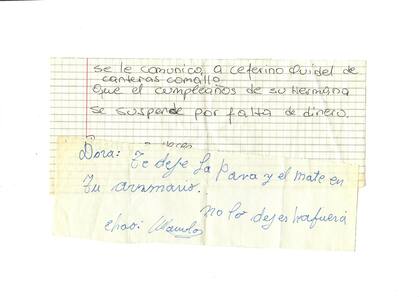 se le comunico a ceferino Quidel de
canteras comallo
Que el cumpleaños de su Hermana
se suspende por falta de dinero.
Dora: te deje la pava y el mate en
tu armario.
no lo dejes hafuera
chao: